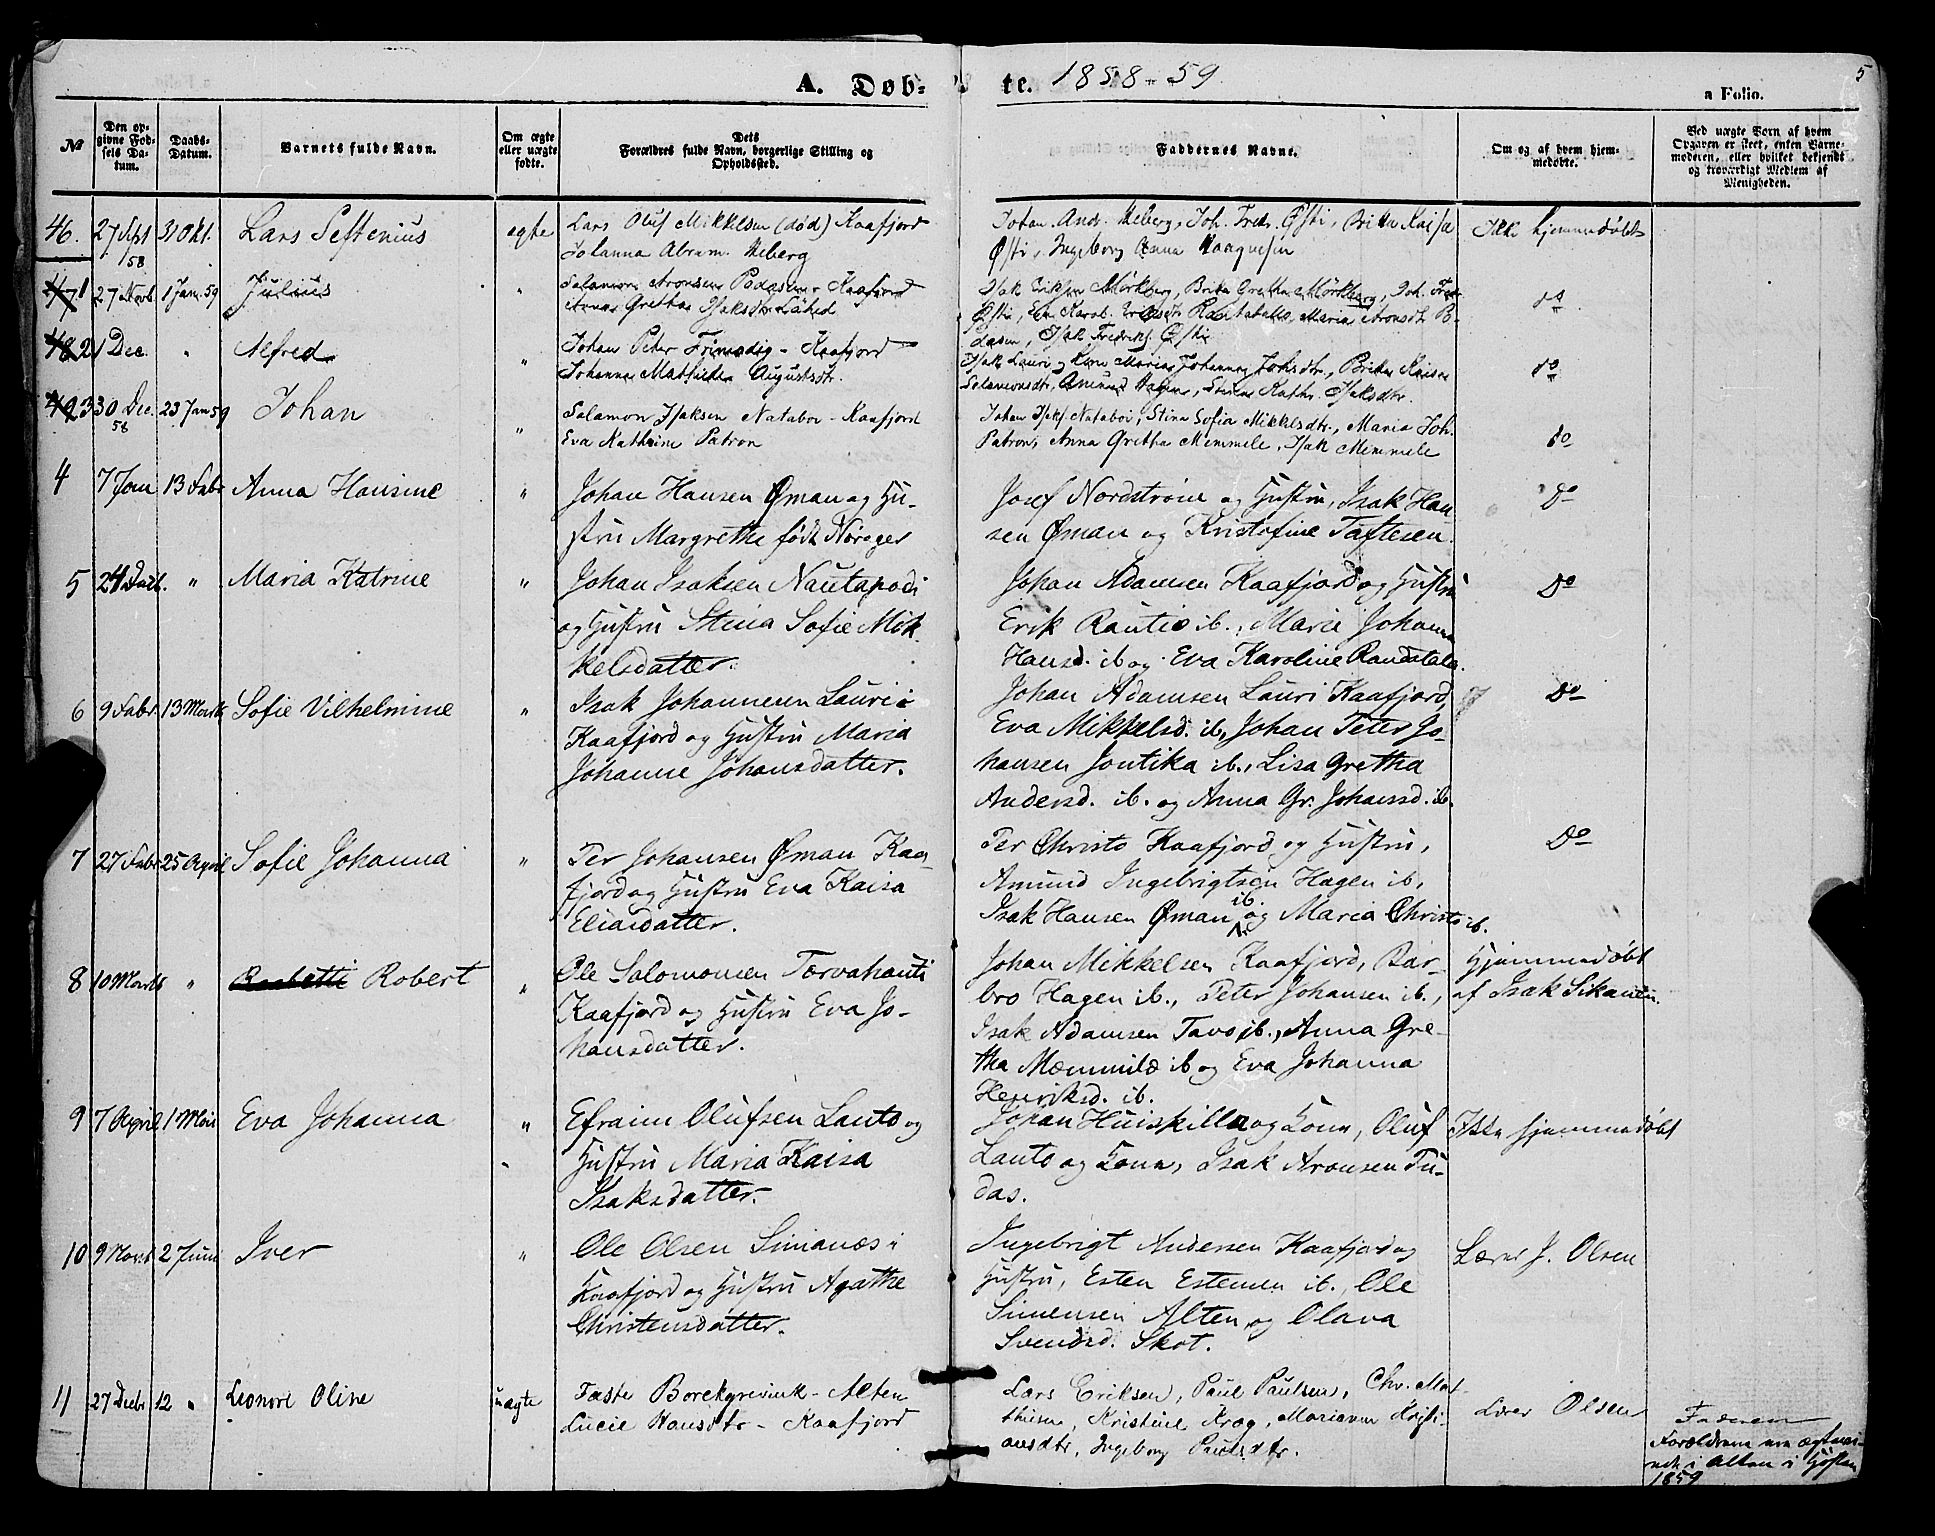 A. Døb-te. 1858-59. 5
a Folio.
№
Den opgivne Fødsels Datum.
Daabs-Datum.
Barnets fulde Navn.
Om ægte eller uægte fødte.
Dets Forældres fulde Navn, borgerlige Stilling og Opholdssted.
Faddernes Navne.
Om og af hvem hjemmedøbte.
Ved uægte Børn af hvem Opgaven er skeet, enten Barnemoderen, eller hvilket bekjendt og troværdigt Medlem af Menigheden.
46. 27 Sept 58 31 Okt. Lars Seftenius ægte
Lars Oluf Mikkelsen (død) Kaafjord
Johanna Abram. Heberg
Johan Andr. Heberg, Joh. Fredr. Østi, Brita Kaisa
Østi, Ingeborg Anna Haaguesen
Ikke hjemmedøbt
1 27 Novb. 1 Jan. 59 Julius "
Salamon Aronsen Kaafjord
Anna Gretha Isaksdtr
Isak Eriksen Mörkberg, Brita Gretha Mörkberg, Joh. Fredr.
Østi, Eva Karol. Eriksdtr Rautatallo, Maria Aronsdt
Isak Fredriks. Østi
do
2 1 Dec. " Alfred "
Johan Peter - Kaafjord
Johanna Mathilda Augustsdtr.
Isak Lauri og Kone Maria Johanna Johsdtr., Brita Kaisa
Salamonsdtr, Amund Hagen, Stina Kathr. Isaksdtr.
do
3 30 Dec. 58 23 Jan 59 Johan "
Salamon Isaksen Natabor - Kaafjord
Eva Kathrine Patron
Johan Isaks. Nataboi, Stina Sofia Mikkelsdtr., Maria Joh.
Patron, Anna Gretha Memmele, Isak Memmele
do
4 7 Jan 13 Febr Anna Hansine "
Johan Hansen Øman og Hu-
stru Margretha født Norager
Josef Nordström og Hustru, Isak Han-
sen Øman og Kristofine Taftesen.
Do
5 24 " Maria Katrine "
Johan Isaksen Nautapodi
og Hustru Stina Sofie Mik
kelsdatter.
Johan Adamsen Kaafjord og Hustru
Erik Rautio ib., Marie Johanna
Hansd. ib og Eva Karoline Randatala.
Do
6 9 Febr 13 Marts Sofie Vilhelmine "
Isak Johannesen Lauri i
Kaafjord og Hustru Maria
Johanne Johansdatter.
Johan Adamsen Lauri Kaafjord,
Eva Mikkelsd. ib, Johan Peter Jo-
hansen Jontika ib., Lisa Gretha
Andersd. ib. og Anna Gr. Johansd. ib.
Do
7 27 Febr 25 April Sofie Johanna "
Per Johansen Øman Kaa-
fjord og Hustru Eva Kaisa
Eliasdatter.
Per Christo Kaafjord og Hustru,
Amund Ingebrigtsen Hagen ib,
Isak Hansen Øman ib. og Maria Christo ib.
Do
8 10 Marts " Robert "
Ole Salomonsen Tærvahauti
Kaafjord og Hustru Eva Jo-
hansdatter.
Johan Mikkelsen Kaafjord, Bar-
bro Hagen ib., Peter Johansen ib.,
Isak Adamsen Tavo ib., Anna Gre-
tha Mæmmilæ ib og Eva Johanna
Henriksd. ib.
Hjemmedøbt
af Isak Sikanen.
9 7 April 1 Mai Eva Johanna "
Efraim Olufsen Lauto og
Hustru Maria Kaisa
Isaksdatter.
Johan Huiskilla og Kone, Oluf
Lauto og Kone, Isak Aronsen Pu-
das.
Ikke hjemmedøbt
10 9 Marts 2 Juni Iver "
Ole Olsen Simanæs i
Kaafjord og Hustru Agathe
Christensdatter.
Ingebrigt Andersen Kaafjord og
Hustru, Esten Estensen ib., Ole
Simensen Alten og Olava
Svendsd. Skot.
Lærer J. Olsen
11 27 Decbr 12 " Leonore Oline uægte
Faste Borchgrevink - Alten
Lucie Hansdtr - Kaafjord
Lars Eriksen, Paul Paulsen, Chr. Mat-
thisen, Kristine Krag, Marianna Kristi-
ansdtr, Ingeborg Paulsdtr.
Lærer Olsen
Faderen
Forældrene ere ægtevi-
ede i Alten i Høsten
1859